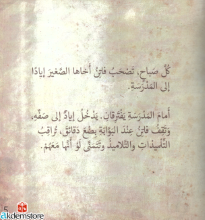 كُلَّ صَبَاحٍ، تَصْحَبُ فَاتِنُ أَخَاهَا الصَّغِيرَ إِيَادًا
إِلَى المَدْرَسَةِ.
أَمَامَ المَدْرَسَةِ يَفْتَرِقَانِ. يَدْخُلُ إِيَادٌ إِلَى صَفِّهِ،
وَتَقِفُ فَاتِنُ عِنْدَ البَوَّابَةِ بِضْعَ دَقَائِقَ، تُرَاقِبُ
التِّلْمِيذَاتِ وَالتَّلَامِيذَ وَتَتَمَنَّى لَوْ أَنَّهَا مَعَهُمْ.
dkdemstore